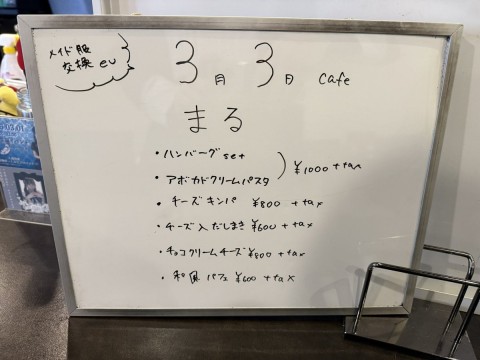 メイド服
交換 ev
3月3日 cafe
まる
・ハンバーグset
・アボカドクリームパスタ
¥1000+tax
・チーズキンパ ¥800+tax
・チーズ入だしまき ¥600+tax
・チョコクリームチーズ ¥800+tax
・和風パフェ ¥600+tax